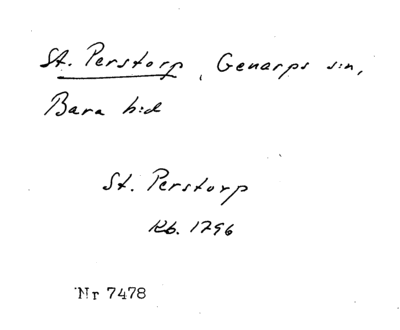 St. Perstorp, Genarps s:n,
Bara h:d
St. Perstorp
Kb. 1796
Nr 7478